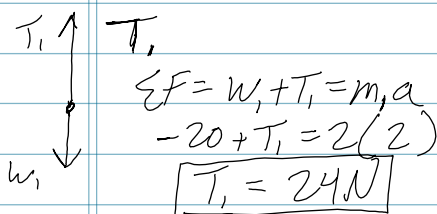 T₁ T₁
ΣF = W₁ + T₁ = m₁a
-20 + T₁ = 2(2)
W₁
T₁ = 24N